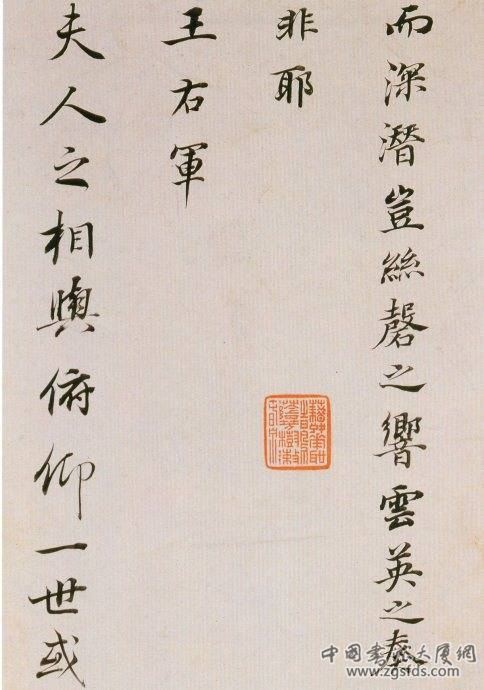 而深潛豈絲磬之響雲英之奏
非耶
王右軍
夫人之相與俯仰一世或
中國書法大厦網
www.zgsfds.com